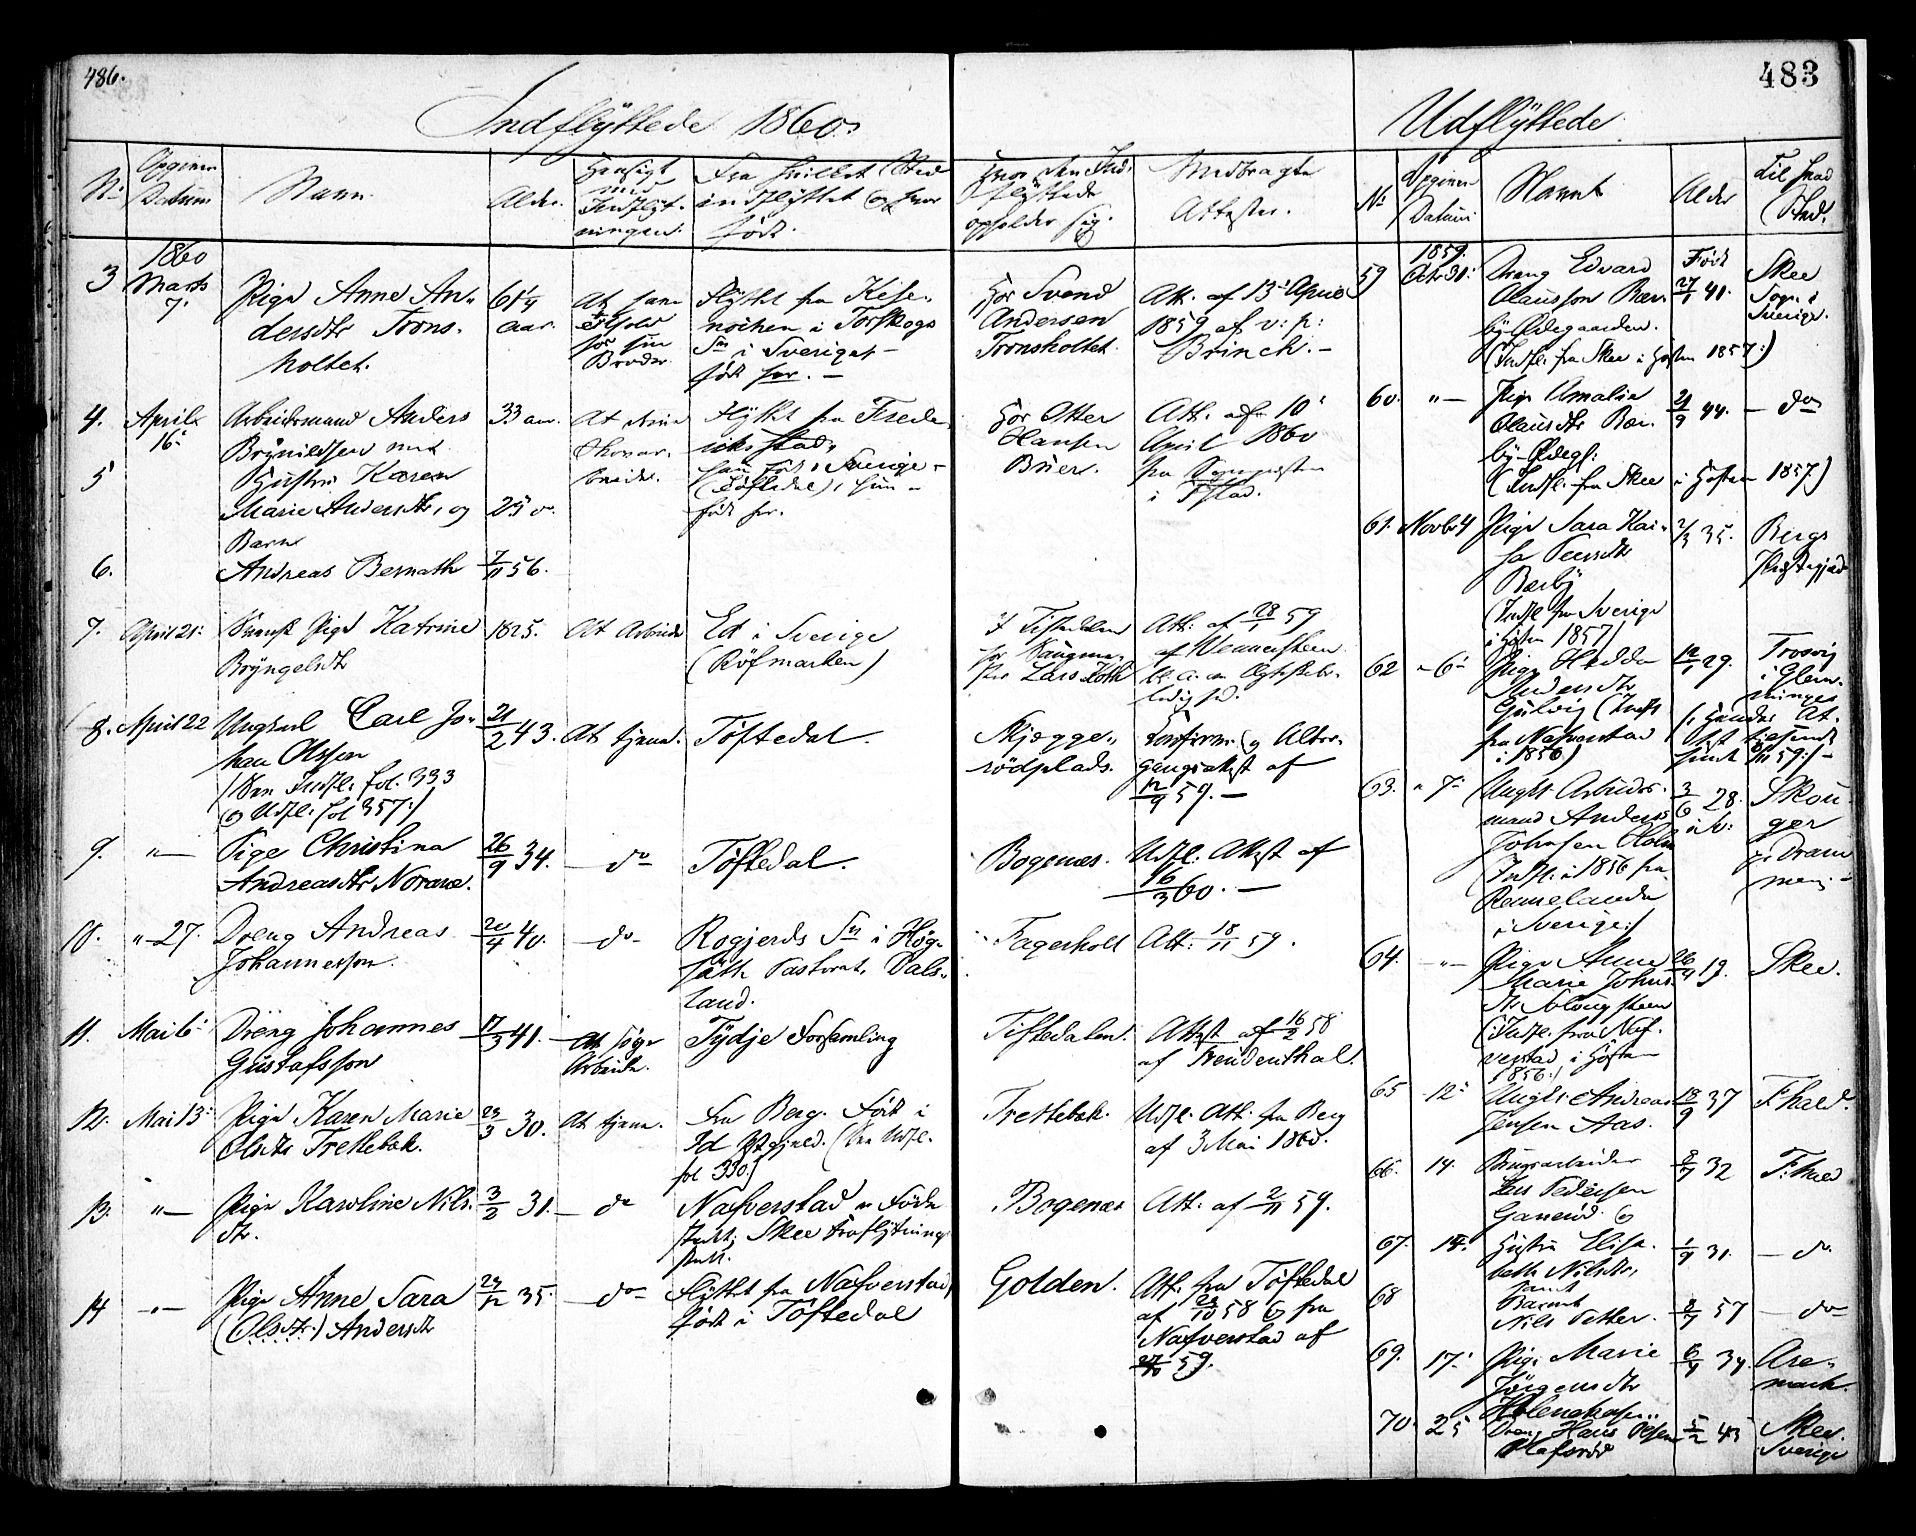 486.
Indflÿttede 1860.
No
Opgivne Datum
Navn.
Alder.
Hensigt med Indflÿtningen.
Fra hvilket Sted indflÿttet og hvor født.
Hvor den Indflÿttede opholder sig.
Medbragte Attester.
1860
3 Marts 7. Pige Anne An-
dersdtr Trons-
holtet.
aar.
Broder.
Flÿttet fra
i Torskogs
Sn i Sverige -
født her. -
Hos Svend
Andersen
Tronsholtet.
Att. af 13de April
1859 af v: p:
Brinch. -
4. April 16. Arbeidsmand Anders
Brÿnildsen med
5 Hustru Karen
Marie Andersdtr, og
Barn
6. Andreas Bernath 7/11 56.
33 aar.
25 o.
Flÿttet fra Frede-
rikstad,
han født i Sverige -
(Tøftedal), hun -
født her.
Hos Otter
Hansen
Brier.
Att. af 10
April 1860
fra Sognepresten
i Fstad.
7. April 21. Svensk Pige Katrine
Brÿngelsdtr
1825. At Arbeide
Ed i Sverige
(Röfmarken)
I Tistedalen
Lars
Att. af 28/1 59
af Wennersteen
8. April 22 Ungkarl Carl Jo-
han Olssen
(See Indfl. fol. 333
og Udfl. fol 357.)
21/2 43. At tjene. Töftedal.
Skjægge-
rödplads.
Konfirm. og Alter-
gangsattest af
12/9 59. -
9. " — Pige Christina
Andreasdtr Norane.
26/9 34. — do Töftedal.
Bogenæs. Udfl. Attest af
16/3 60. —
10. " 27. Dreng Andreas
Johannesson.
20/4 40. — do —
Rogjerds Sn i Hög-
säth Pastorat, Dals-
land.
Fagerholt Att. 18/11 59.
11. Mai 6 Dreng Johannes
Gustafsson
17/3 41. At søge
Arbeide.
Tÿdje Forsamling
Tistedalen. Attest af 16/2 58
af Freudenthal.
12. Mai 13 Pige Karen Marie
Olsdtr Trettebak.
23/3 30. At tjene.
Fra Berg. Født i
Id Pstgjeld. (See Udfl.
fol 330)
Trettebak. Udfl. Att. fra Berg
af 3 Mai 1860.
13. " — Pige Karoline Nils-
dtr.
3/2 31. — do
Nafverstad - Føde-
sted; Skee Fraflÿtnings-
sted.
Bogenæs Att. af 2/11 59.
14 " — Pige Anne Sara
(Olsdtr.) Andersdtr
24/12 35. — do —
Flÿttet fra Nafverstad,
født i Töftedal
Golden. Att. fra Töftedal
af 23/10 58 og fra
Nafverstad af
27/10 59.
483
Udflÿttede
No
Opgivne Datum
Navnet
Alder
Til hvad Sted.
1859.
59 Octr 31. Dreng Edvard
Olausson Bær-
bÿ-Ødegaarden.
(Indfl. fra Skee i Høsten 1857:)
Født
27/1 41.
Skee
Sogn i
Sverige.
60. " — Pige Amalia
Olausdtr Bær-
bÿ-Ødegd:
(Indfl. fra Skee i Høsten 1857.)
21/9 44. — do
61. Novbr 4 Pige Sara Kai-
sa Peersdtr
Bærbÿ
(Indfl. fra Sverige
i Høsten 1857)
2/3 35. Bergs
Præstegjeld
62 " 6 Pige Hedda
Andersdtr
Gulvig (Indfl.
fra Nafverstad
i 1856)
12/1 29. Trosvig
i Glem-
minge
63. " 7 Ungk. Arbeids-
mand Anders
Johnsen Holm
(Indfl. i 1856 fra
Rennelanda
i Sverige.)
3/6 28. Skou-
ger
p: Dram-
men. -
64. " — Pige Anne
Marie Johns-
dtr
(Indfl. fra Naf-
verstad i Høsten
1856.)
26/4 19. Skee.
65 12 Ungk. Andreas
Jensen Aas.
18/9 37 F:hald.
66. 14. Brugsarbeider
Lars Pedersen
Ganerød og
8/7 32 F:hald
67. 14. Hustru Elisa-
beth Nilsdtr,
samt
1/9 31. — do.
68 Barnet
Nils Petter.
8/7 57 — do
69. 17. Pige Marie
Jörgensdtr
6/4 34 Are-
mark.
70. 25 Dreng Hans Olsen
5/2 43 Skee
Sverige